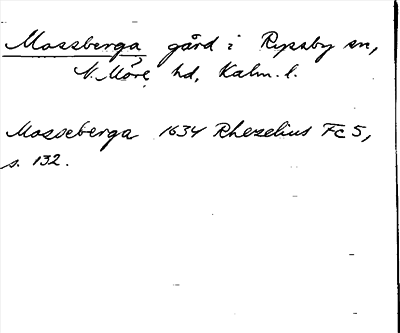 Mossberga gård i Ryssby sn,
N. Möre hd, Kalm. l.
Mosseberga 1634 Rhezelius Fc 5,
s. 132.